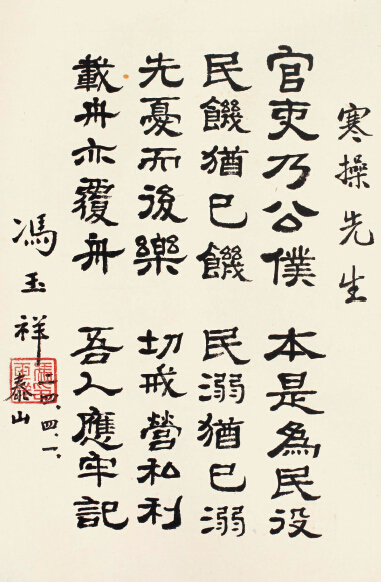 寒操先生
官吏乃公僕 本是為民役
民饑猶已饑 民溺猶已溺
先憂而後樂 切戒營私利
載舟亦覆舟 吾人應牢記
馮玉祥
二四、四、一、
泰山